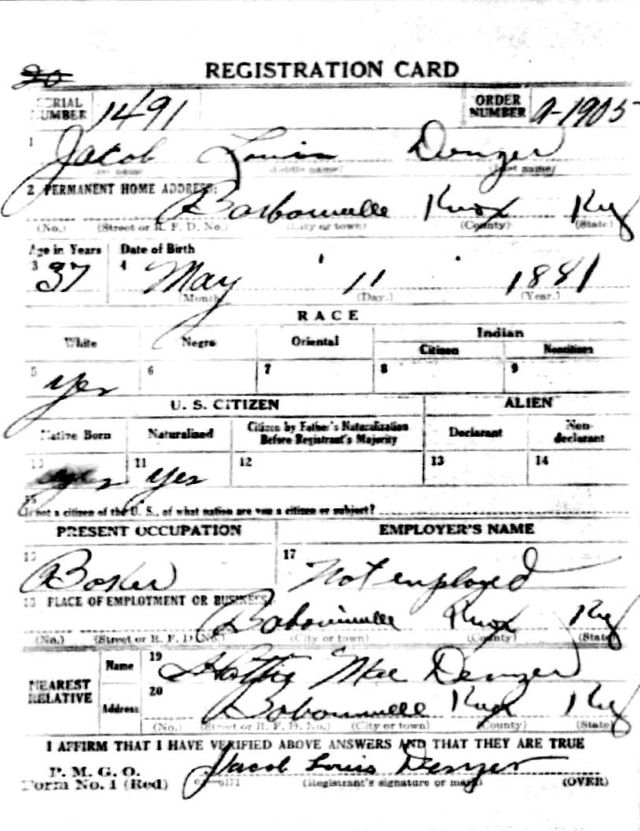 20
REGISTRATION CARD
SERIAL NUMBER 1491 ORDER NUMBER A-1905
1 Jacob Louis Denzer
(Middle name) (Last name)
2 PERMANENT HOME ADDRESS:
Barbourville Knox Ky
(No.) (Street or R. F. D. No.) (City or town) (County) (State)
Age in Years Date of Birth
3 37 4 May 11 1881
(Month) (Day.) (Year.)
RACE
White Negro Oriental Indian
Citizen Noncitizen
5 Yes 6 7 8 9
U. S. CITIZEN ALIEN
Native Born Naturalized Citizen by Father's Naturalization Before Registrant's Majority Declarant Non-declarant
10 11 Yes 12 13 14
15
If not a citizen of the U. S., of what nation are you a citizen or subject?
PRESENT OCCUPATION EMPLOYER'S NAME
16 17
Not employed
18 PLACE OF EMPLOYMENT OR BUSINESS:
Knox Ky
(No.) (Street or R. F. D. No.) (City or town) (County) (State)
NEAREST RELATIVE
Name 19 Mae Denzer
Address 20 Knox Ky
(No.) (Street or R. F. D. No.) (City or town) (County) (State)
I AFFIRM THAT I HAVE VERIFIED ABOVE ANSWERS AND THAT THEY ARE TRUE
P. M. G. O.
Form No. 1 (Red) Jacob Louis Denzer
(Registrant's signature or mark) (OVER)